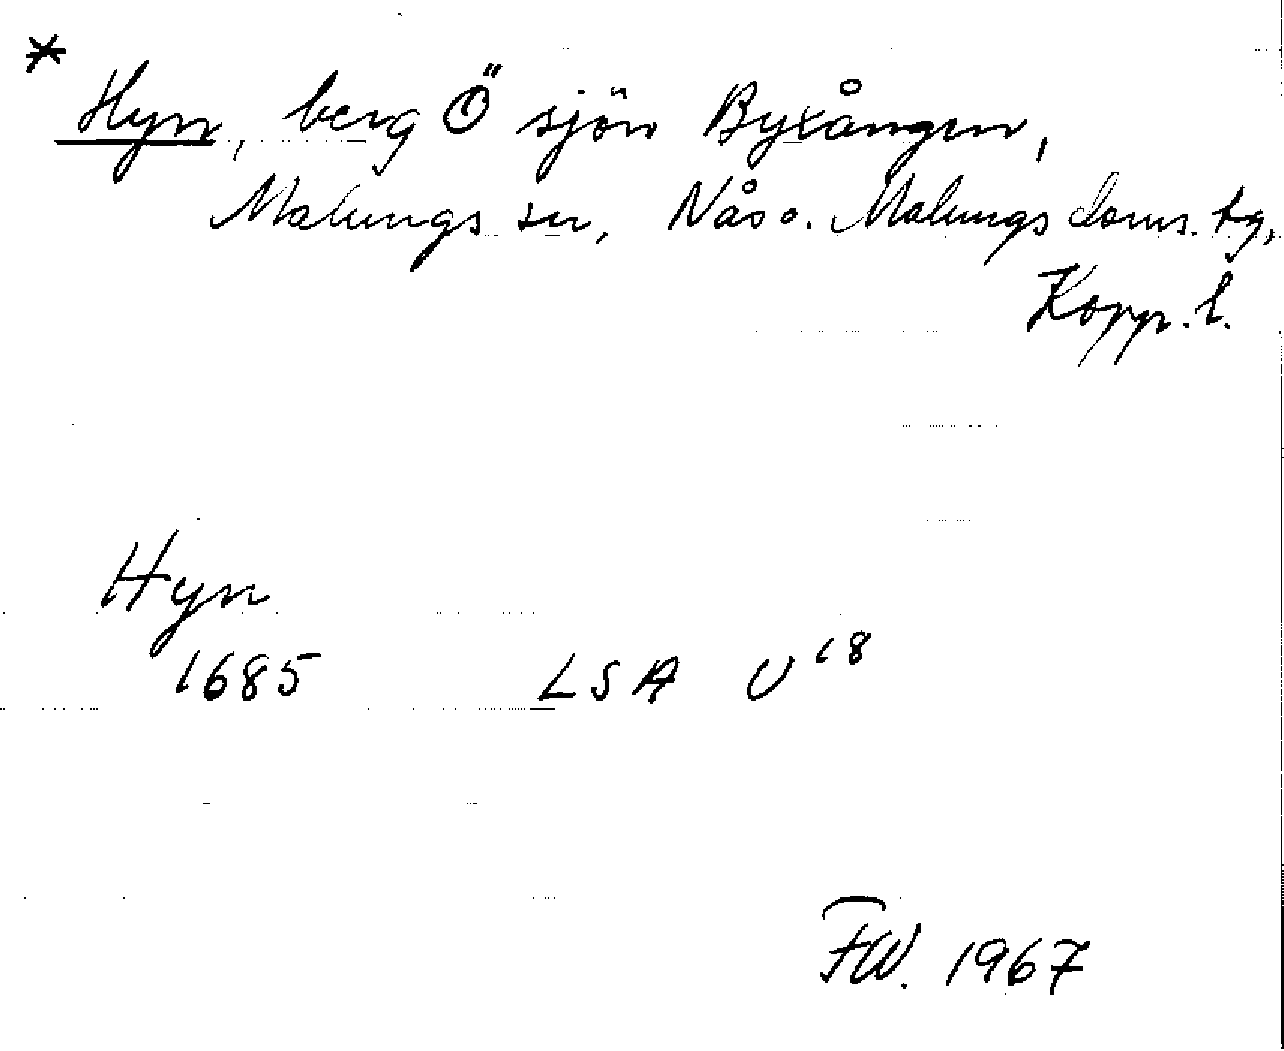 * Hyn, berg Ö sjön Byxången,
Malungs sn, Nås o. Malungs doms. tg,
Kopp. l.
Hyn
1685 LSA U18
FW. 1967